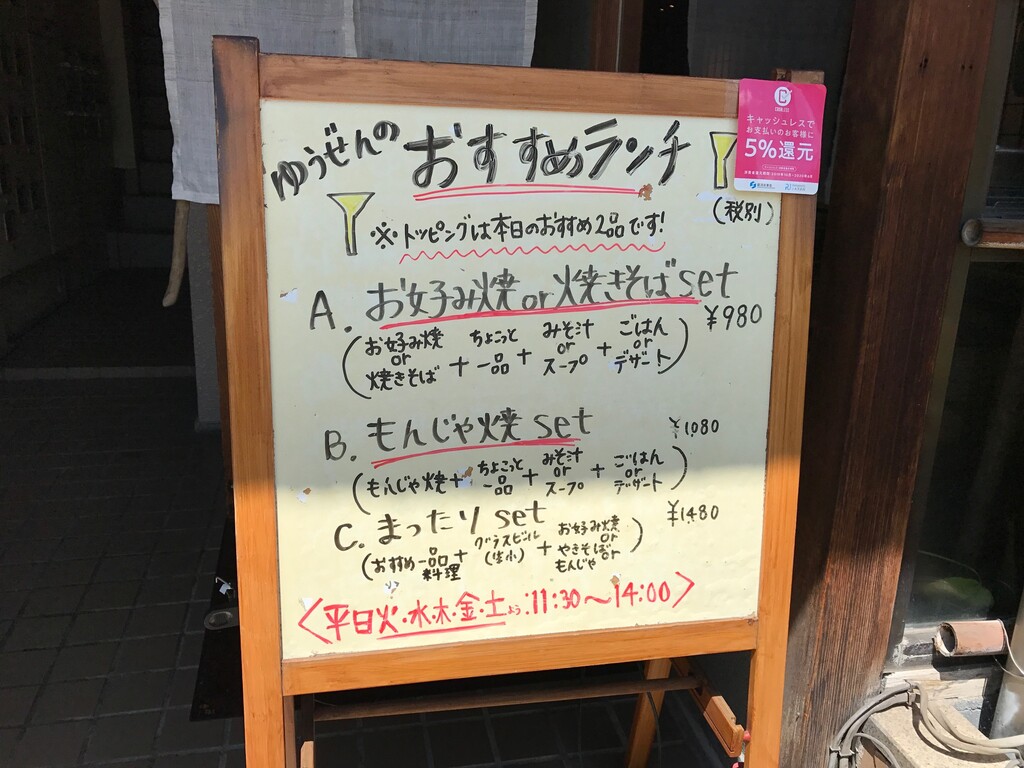 ゆうぜんの おすすめランチ
(税別)
※トッピングは本日のおすすめ2品です!
A. お好み焼 or 焼きそば set ¥980
(お好み焼 or 焼きそば + ちょこっと一品 + みそ汁 or スープ + ごはん or デザート)
B. もんじゃ焼 set ¥1,080
(もんじゃ焼 + ちょこっと一品 + みそ汁 or スープ + ごはん or デザート)
C. まったり set ¥1,480
(おすすめ一品料理 + グラスビール(生小) + お好み焼 or やきそば or もんじゃ)
<平日火・水・木・金・土よう:11:30〜14:00>
キャッシュレスで
お支払いのお客様に
5%還元